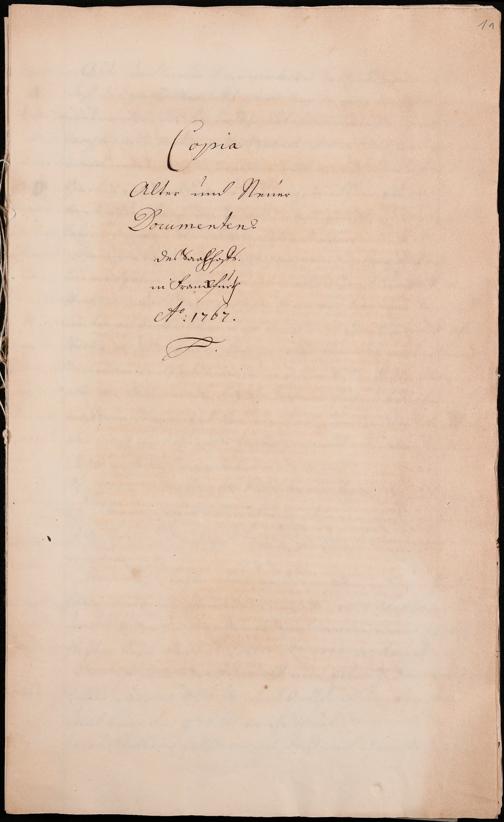 1a
Copia
Alter und Neuer
Documenten
des Saalhofs.
in Franckfurth
Aº: 1767.